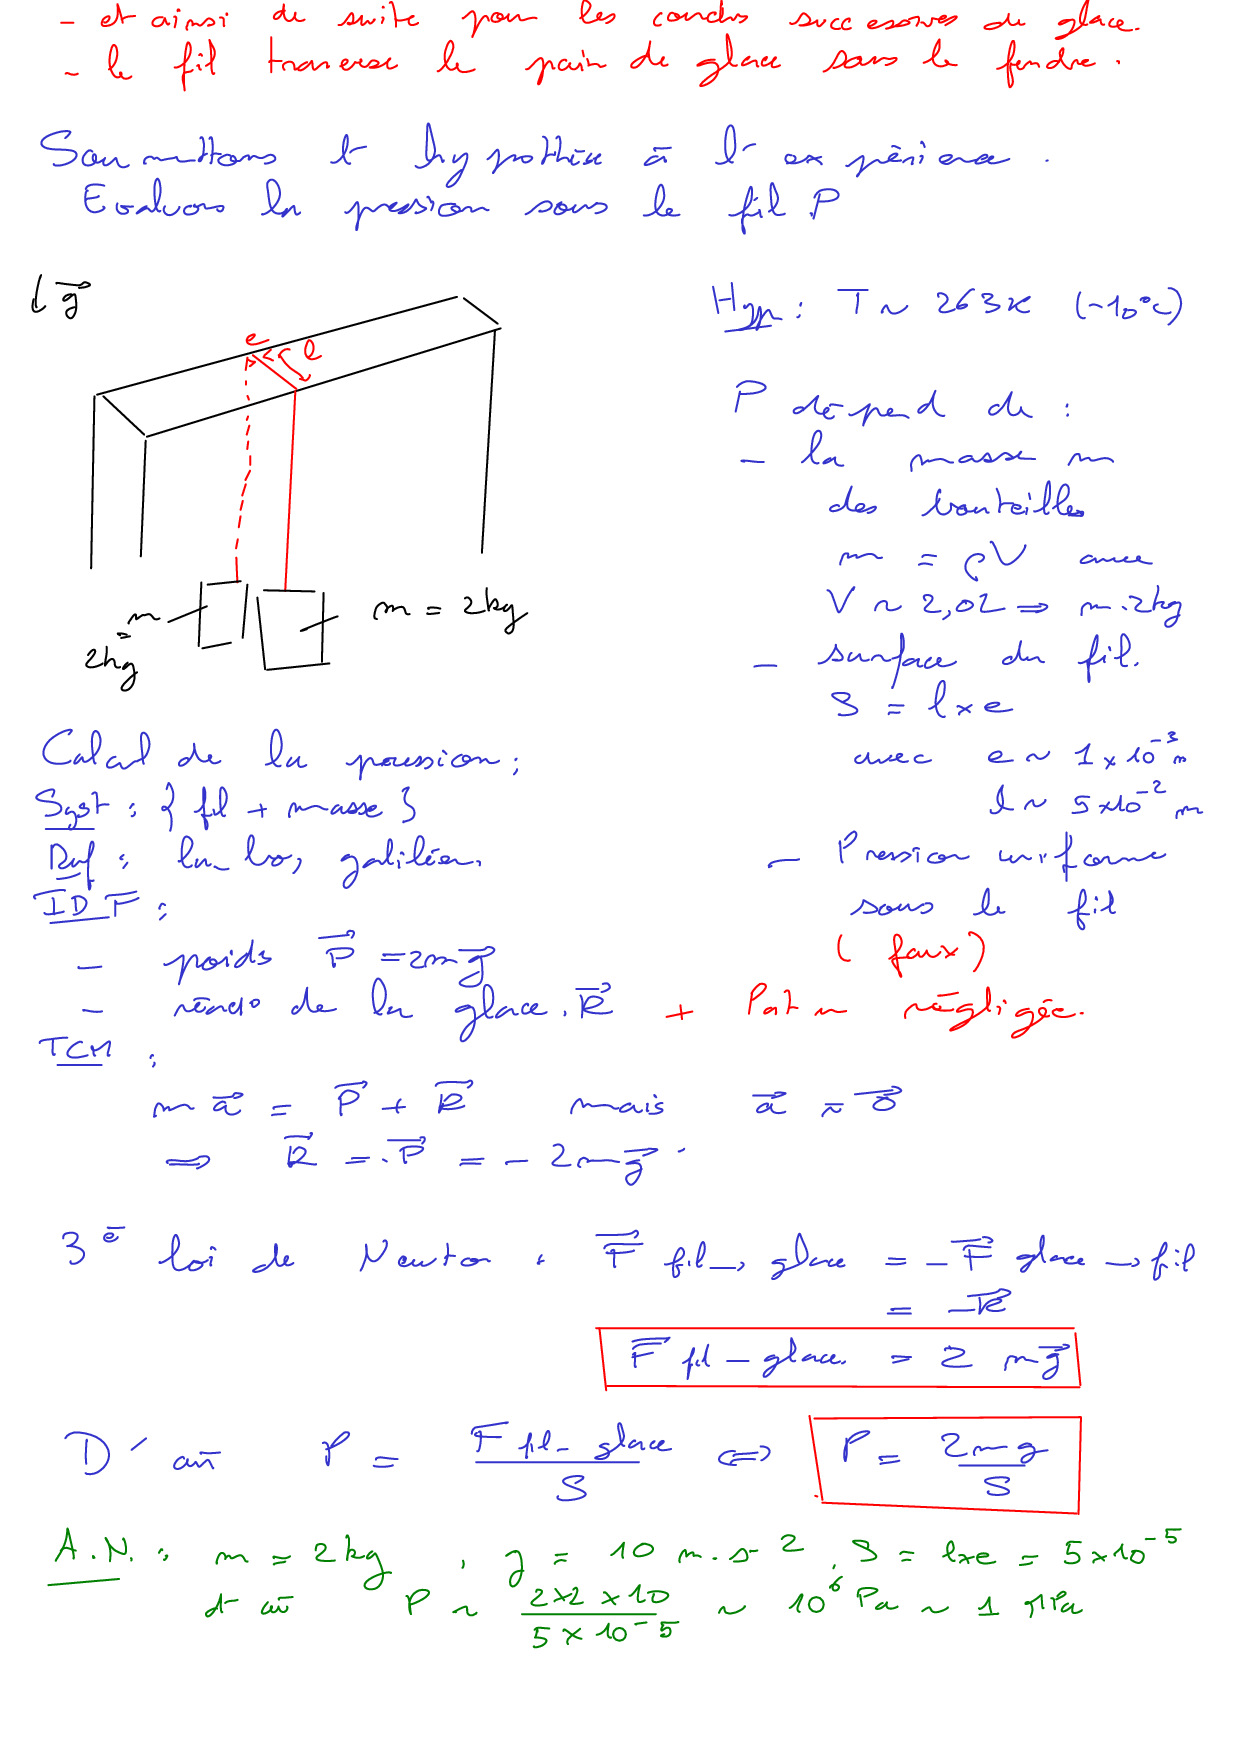 - et ainsi de suite pour les couches successives de glace.
- le fil traverse le pain de glace sans le fendre.
Soumettons l'hypothèse à l'expérience.
Evaluons la pression sous le fil P
g
e
l
m = 2kg
m
=
2kg
Hyp : T ~ 263K (-10°C)
P dépend de :
- la masse m
des bouteilles
m = ρV avec
V ~ 2,0L ⇒ m.2kg
- surface du fil.
S = l×e
avec e ~ 1×10⁻³ m
l ~ 5×10⁻² m
- Pression uniforme
sous le fil
(faux)
Calcul de la pression :
Syst : { fil + masse }
Ref : labo, galiléen.
IDF :
- poids P = 2mg
- réact° de la glace. R + Patm négligée.
TCM :
m a = P + R mais a ≈ 0
⇒ R = -P = - 2mg
3è loi de Newton : F fil → glace = - F glace → fil
= -R
F fil - glace = 2 mg
D'où P = F fil - glace / S ⇔ P = 2mg / S
A.N. : m = 2kg , g = 10 m.s-2 , S = l×e = 5×10⁻⁵
d'où P ~ 2×2×10 / 5×10⁻⁵ ~ 10⁶ Pa ~ 1 MPa